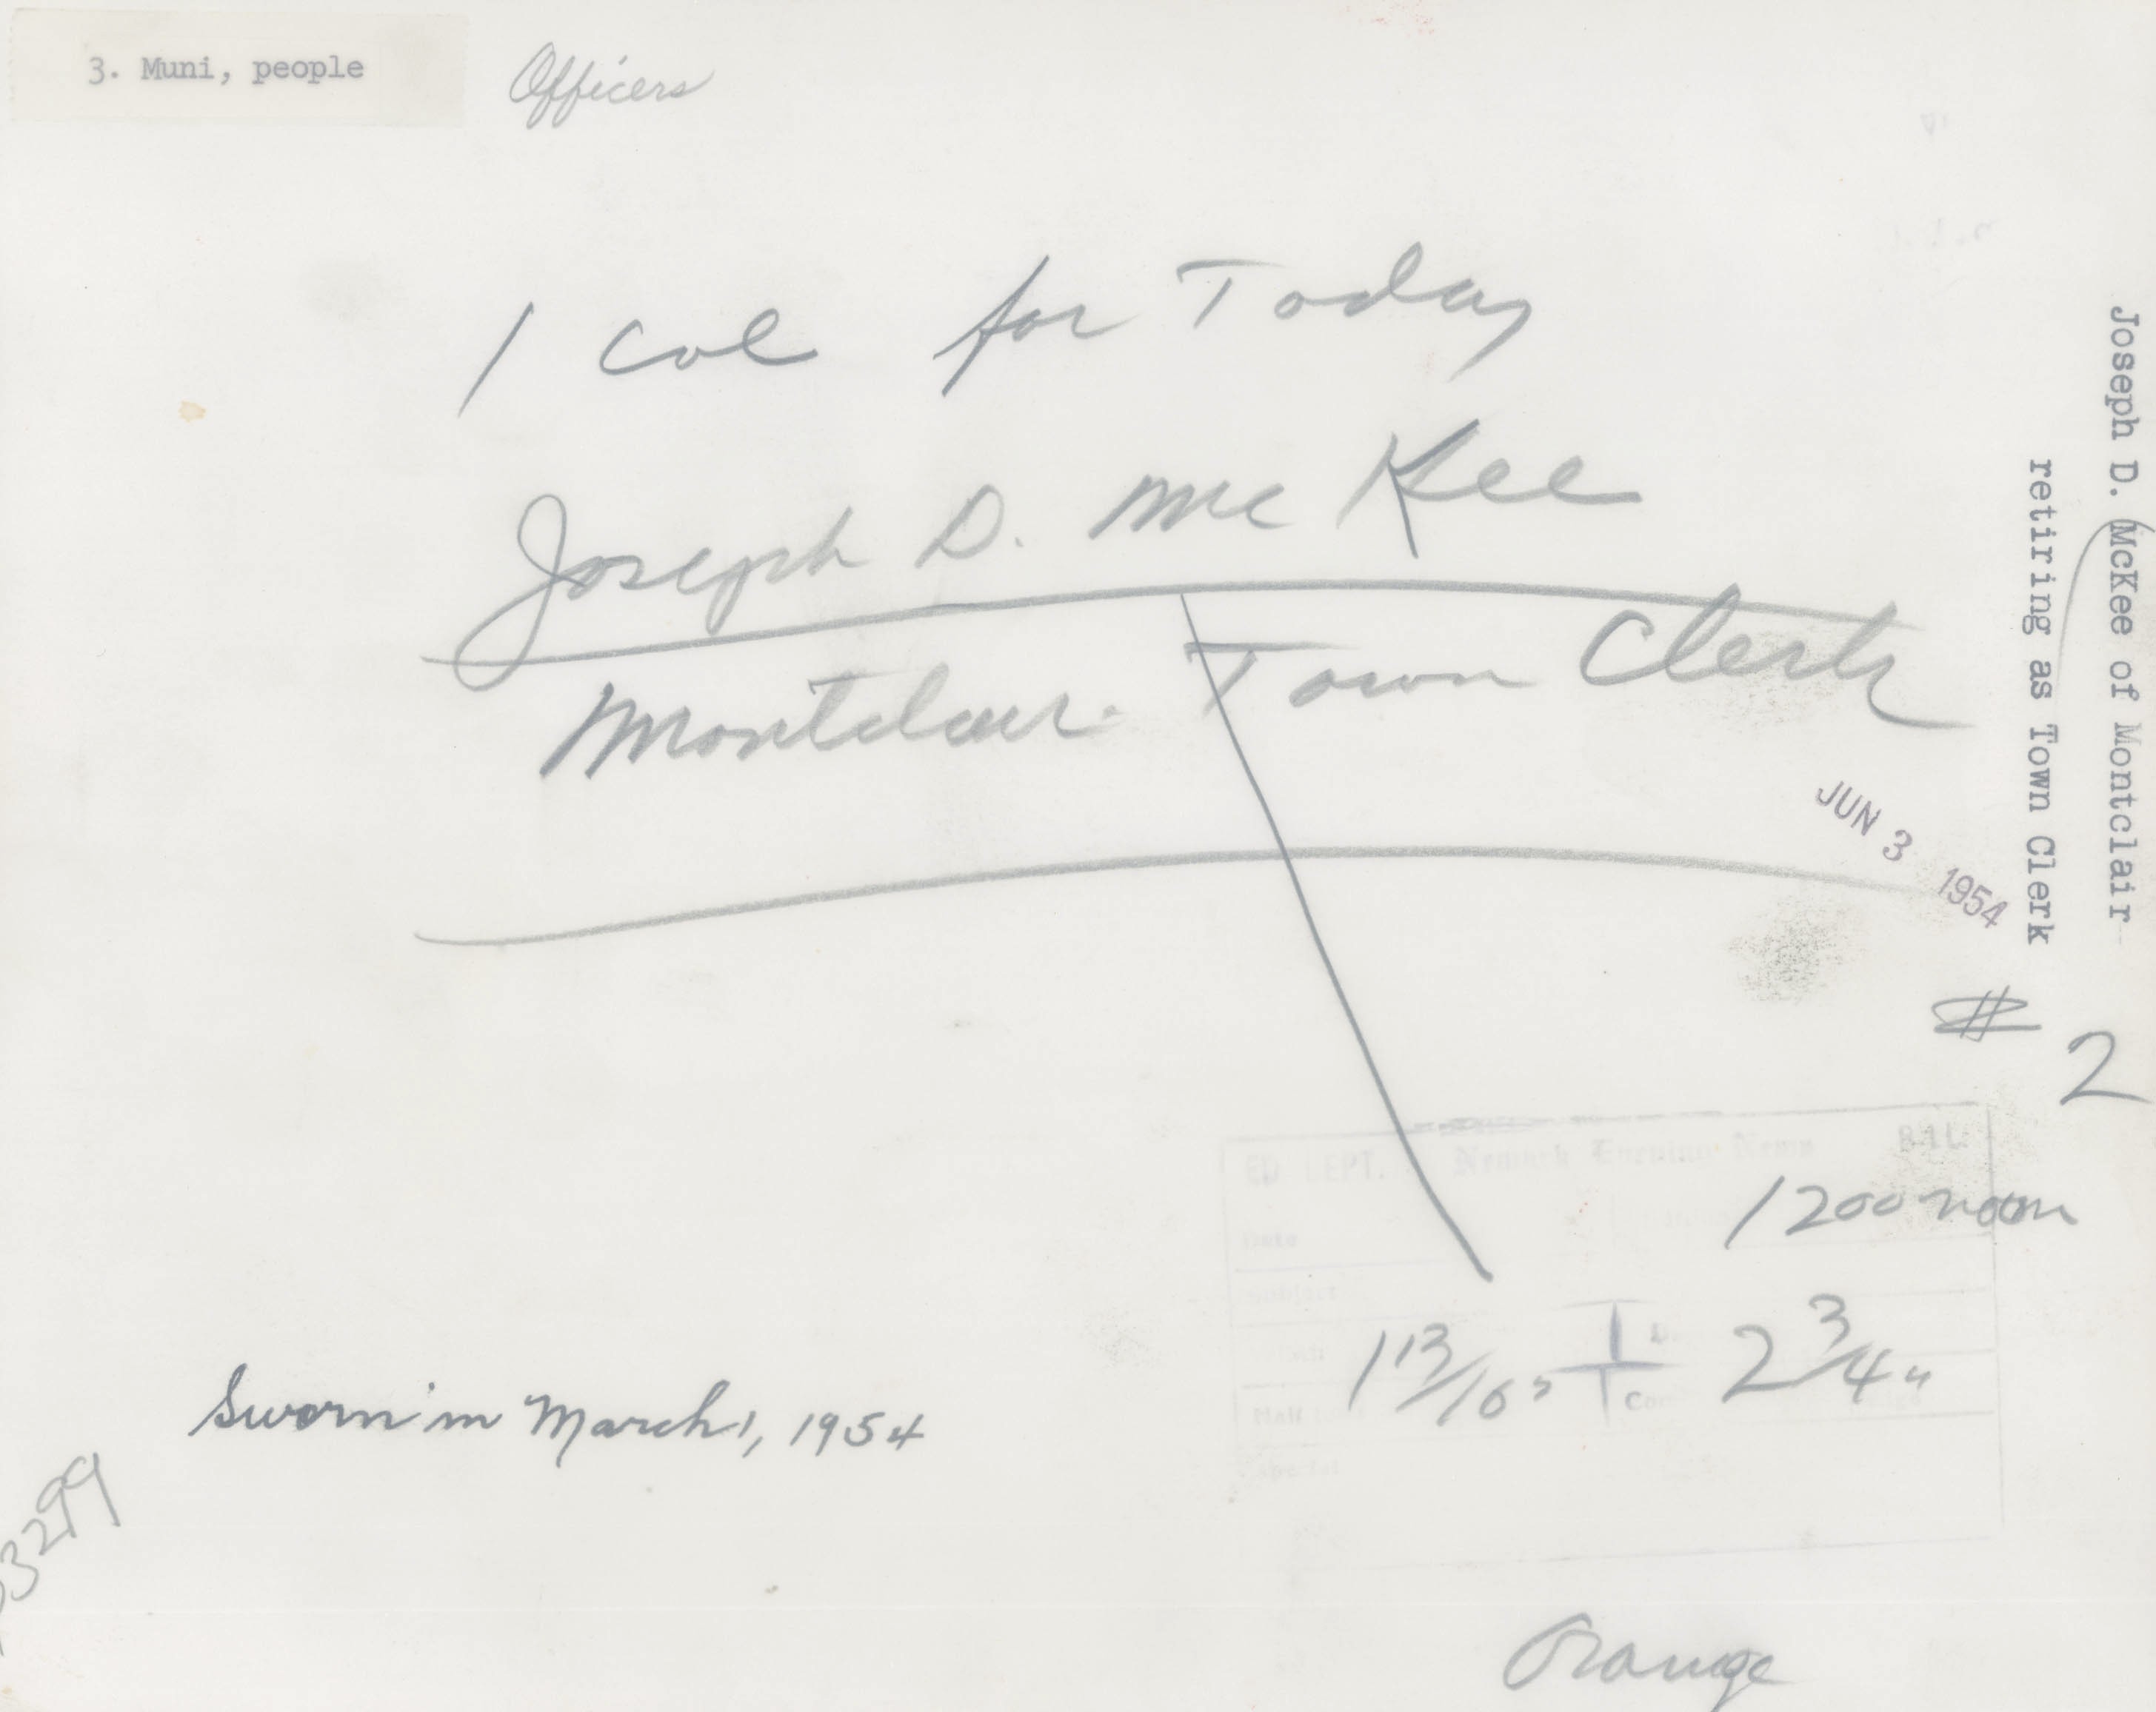 3. Muni, people
Officers
1 col for Today
Joseph D. McKee
Montclair Town Clerk
Joseph D. McKee of Montclair
retiring as Town Clerk
JUN 3 1954
# 2
ED DEPT. Newark Evening News
Date
Subject
1200 noon
1 13/16" + 2 3/4"
Sworn in March 1, 1954
3299
Orange